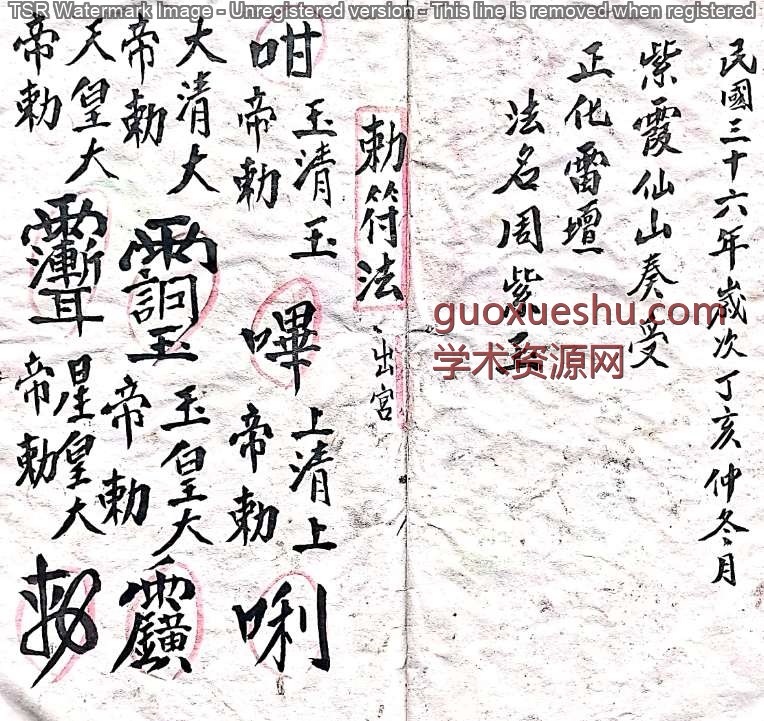 TSR Watermark Image - Unregistered version - This line is removed when registered
民國三十六年歲次丁亥仲冬月
紫霞仙山奏受
正化雷壇
法名周紫
guoxueshu.com
学术资源网
勅符法
出宮
咁
玉清玉
帝勅
嗶
上清上
帝勅
唎
大清大
帝勅
玉皇大
帝勅
天皇大
帝勅
星皇大
帝勅